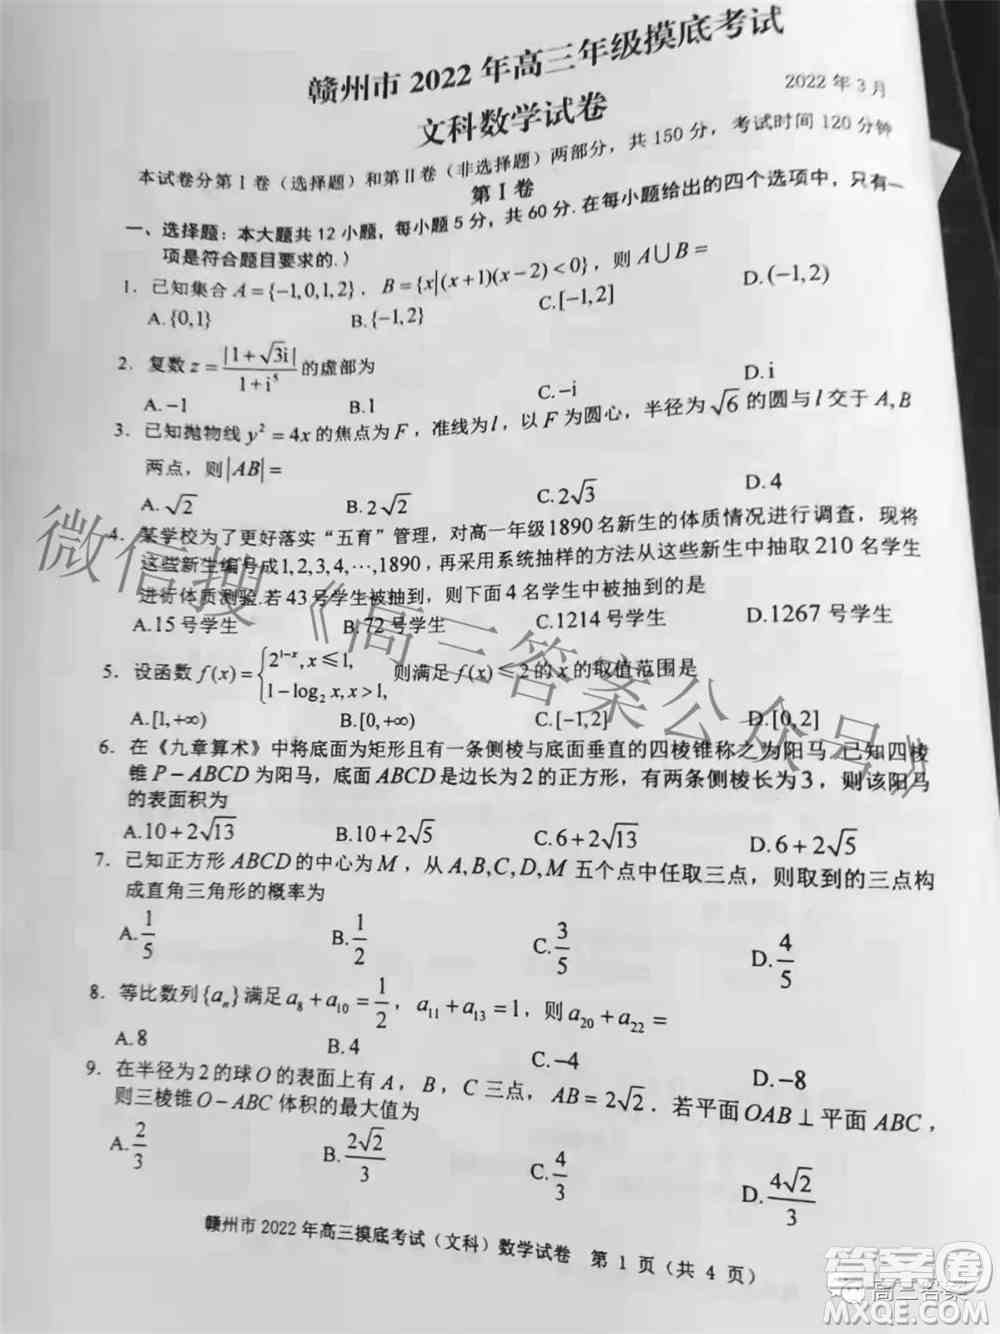 赣州市2022年高三年级摸底考试
文科数学试卷
2022年3月
本试卷分第Ⅰ卷（选择题）和第Ⅱ卷（非选择题）两部分，共150分，考试时间120分钟
第Ⅰ卷
一、选择题：本大题共12小题，每小题5分，共60分.在每小题给出的四个选项中，只有一
项是符合题目要求的.）
1．已知集合A={-1,0,1,2}，B={x|(x+1)(x-2)<0}，则A∪B=
A.{0,1} B.{-1,2} C.[-1,2] D.(-1,2)
2．复数z=|1+√3i|/(1+i⁵)的虚部为
A.-1 B.1 C.-i D.i
3．已知抛物线y²=4x的焦点为F，准线为l，以F为圆心，半径为√6的圆与l交于A,B
两点，则|AB|=
A.√2 B.2√2 C.2√3 D.4
4．某学校为了更好落实“五育”管理，对高一年级1890名新生的体质情况进行调查，现将
这些新生编号成1,2,3,4,⋯,1890，再采用系统抽样的方法从这些新生中抽取210名学生
进行体质测验.若43号学生被抽到，则下面4名学生中被抽到的是
A.15号学生 B.72号学生 C.1214号学生 D.1267号学生
5．设函数f(x)={2^(1-x),x≤1, 1-log₂x,x>1, 则满足f(x)≤2的x的取值范围是
A.[1,+∞) B.[0,+∞) C.[-1,2] D.[0,2]
6．在《九章算术》中将底面为矩形且有一条侧棱与底面垂直的四棱锥称之为阳马.已知四棱
锥P-ABCD为阳马，底面ABCD是边长为2的正方形，有两条侧棱长为3，则该阳马
的表面积为
A.10+2√13 B.10+2√5 C.6+2√13 D.6+2√5
7．已知正方形ABCD的中心为M，从A,B,C,D,M五个点中任取三点，则取到的三点构
成直角三角形的概率为
A.1/5 B.1/2 C.3/5 D.4/5
8．等比数列{aₙ}满足a₈+a₁₀=1/2，a₁₁+a₁₃=1，则a₂₀+a₂₂=
A.8 B.4 C.-4 D.-8
9．在半径为2的球O的表面上有A，B，C三点，AB=2√2．若平面OAB⊥平面ABC，
则三棱锥O-ABC体积的最大值为
A.2/3 B.2√2/3 C.4/3 D.4√2/3
赣州市2022年高三摸底考试（文科）数学试卷 第1页（共4页）
微信搜《高三答案公众号》
答案圈
高三答案
MXQE.COM